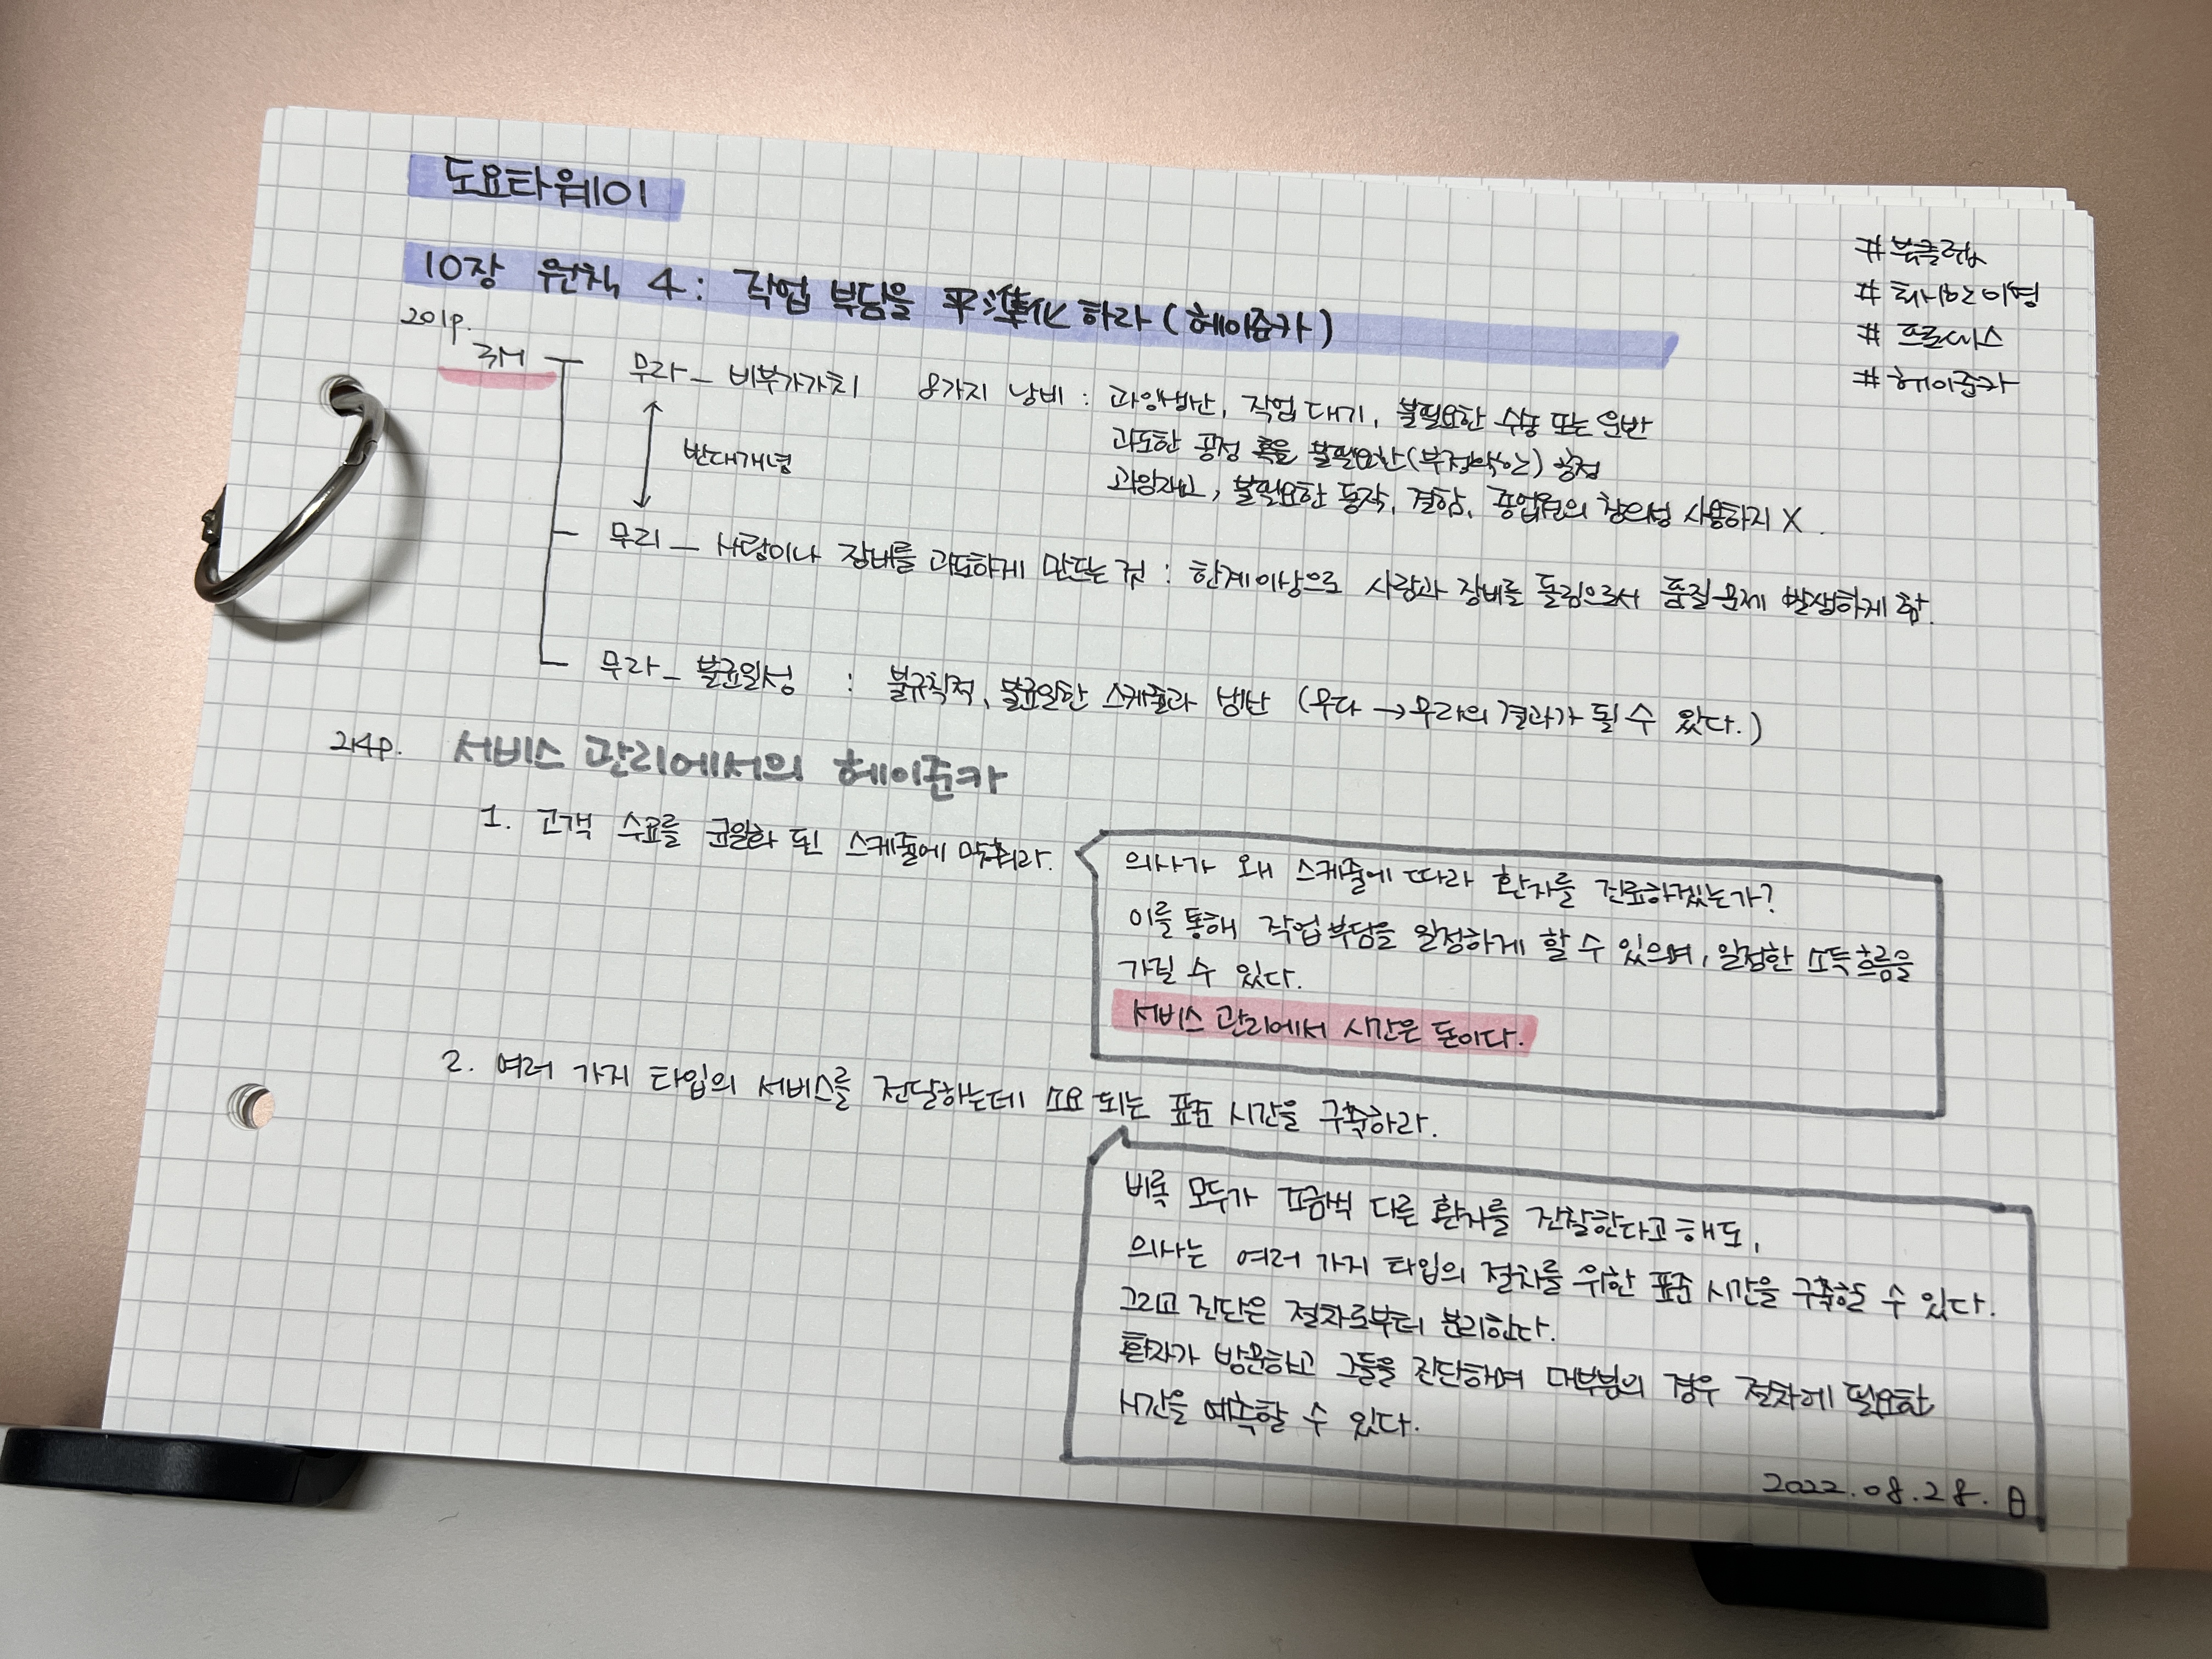 도요타웨이
10장 원칙 4: 작업 부담을 平準化 하라 (헤이준카)
#북클럽
#
# 프로세스
#헤이준카
201p.
3M
무라_ 비부가가치 8가지 낭비 : 과잉생산, 작업대기, 불필요한 수송 또는 운반
과도한 공정 혹은 불필요한(부정확한) 공정
과잉재고, 불필요한 동작, 결함, 종업원의 창의성 사용하지 X.
반대개념
무리_ 사람이나 장비를 과도하게 만드는 것 : 한계이상으로 사람과 장비를 돌림으로서 품질문제 발생하게 함.
무라_ 불균일성 : 불규칙적, 불균일한 스케쥴과 생산 (무다 → 무라의 결과가 될 수 있다.)
214p. 서비스 관리에서의 헤이준카
1. 고객 수요를 균일화 된 스케쥴에 맞춰라.
의사가 왜 스케쥴에 따라 환자를 진료하겠는가?
이를 통해 작업부담을 일정하게 할 수 있으며, 일정한 소득흐름을
가질 수 있다.
서비스 관리에서 시간은 돈이다.
2. 여러 가지 타입의 서비스를 전달하는데 소요 되는 표준 시간을 구축하라.
비록 모두가 조금씩 다른 환자를 진찰한다고 해도,
의사는 여러 가지 타입의 절차를 위한 표준 시간을 구축할 수 있다.
그리고 진단은 절차로부터 분리한다.
환자가 방문하고 그들을 진단하여 대부분의 경우 절차에 필요한
시간을 예측할 수 있다.
2022.08.28. 日